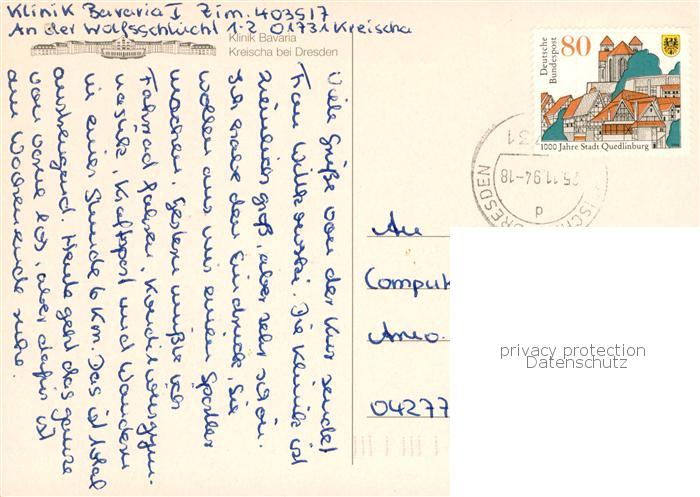 Klinik Bavaria I Zim. 403517
An der Wolfsschlucht 1-2 01731 Kreischa
Klinik Bavaria
Kreischa bei Dresden
Viele Grüße von der Kur sendet
Frau . Die Klinik ist
ziemlich groß, aber sehr schön.
Ich habe den Eindruck, Sie
wollen aus uns einen Sportler
machen. Gestern mußte ich
Fahrrad fahren, Konditionsgym-
nastik, Kraftsport und Wandern
in einer Stunde 6 Km. Das ist total
anstrengend. Heute geht das ganze
von vorne los, aber dafür ist
am Wochenende Ruhe.
Deutsche
Bundespost
80
1000 Jahre Stadt Quedlinburg
25.11.94-18
DRESDEN
d
An
Comput
Anno.
04277
privacy protection
Datenschutz